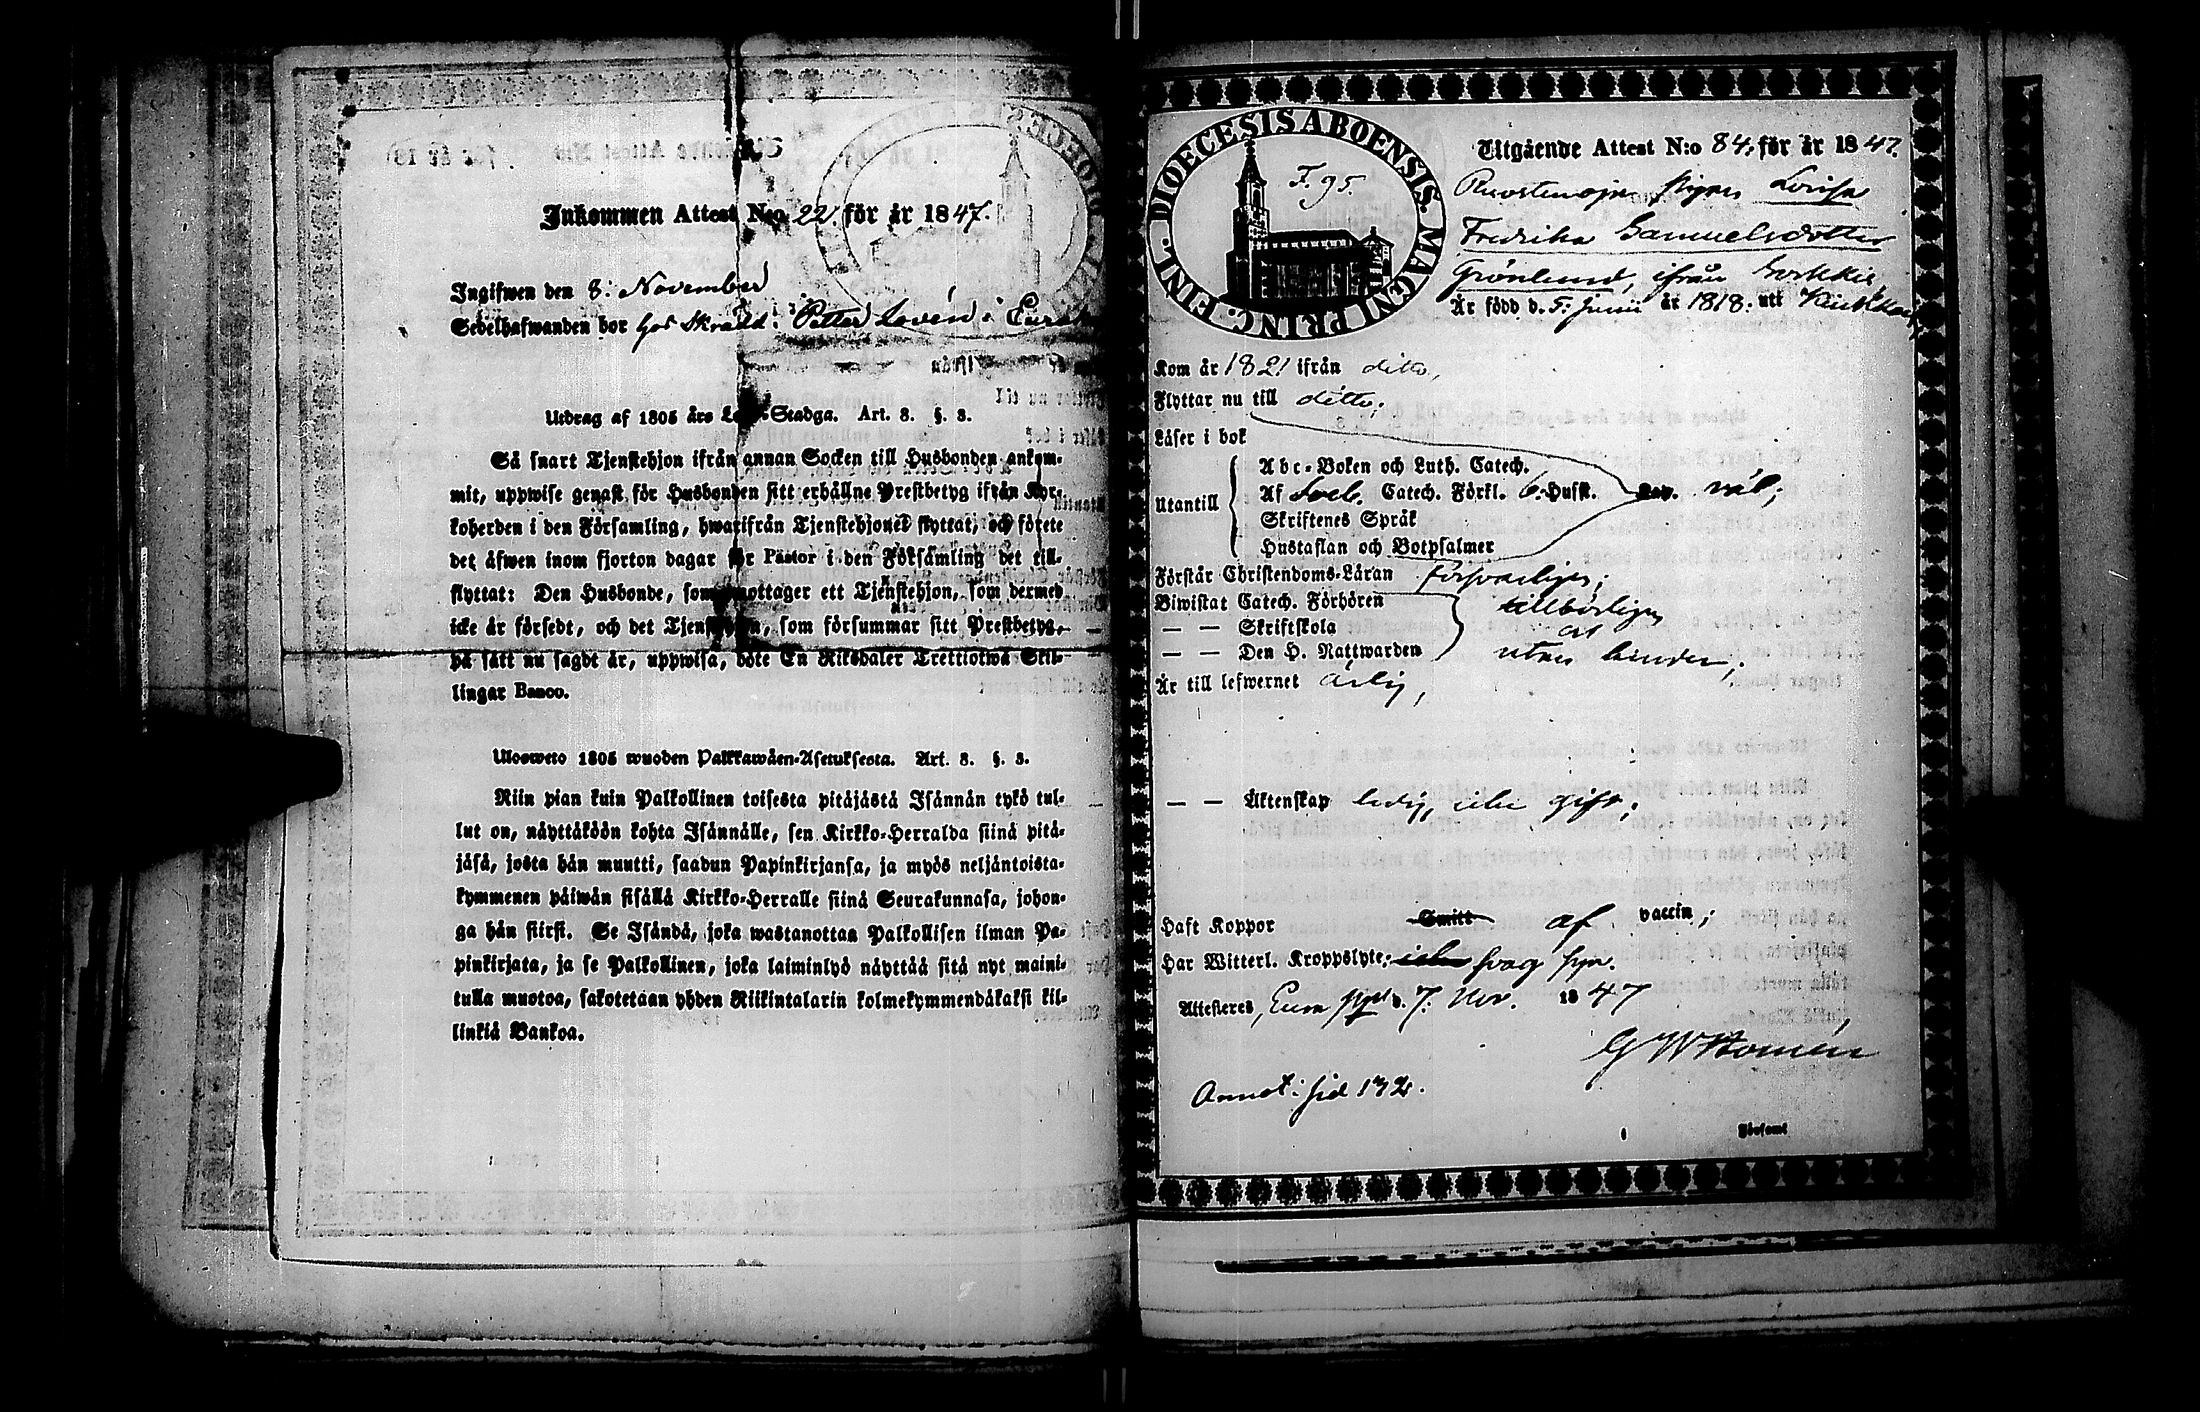 Inkommen Attest N:o 22 för år 1847.
Ingifwen den 8: November
Sedelhafwanden bor hos Skrädd: Petter Lovén i Eura
Utdrag af 1805 års Lego-Stadga. Art. 8. §. 3.
Så snart Tjenstehjon ifrån annan Socken till Husbonden ankom-
mit, uppwise genast för Husbonden sitt erhållne Prestbetyg ifrån Kyr-
koherden i den Församling, hwarifrån Tjenstehjonet flyttat, och förete
det äfwen inom fjorton dagar för Pastor i den Församling det till-
flyttat: Den Husbonde, som mottager ett Tjenstehjon, som dermed
icke är försedt, och det Tjenstehjon, som försummar sitt Prestbetyg,
på sätt nu sagdt är, uppwisa, böte En Riksdaler Trettiotwå Skil-
lingar Banco.
Ulosweto 1805 wuoden Palkkawäen-Asetuksesta. Art. 8. §. 3.
Niin pian kuin Palkollinen toisesta pitäjästä Isännän tykö tul-
lut on, näyttäköön kohta Isännälle, sen Kirkko-Herralda siinä pitä-
jäsä, josta hän muutti, saadun Papinkirjansa, ja myös neljäntoista-
kymmenen päiwän sisällä Kirkko-Herralle siinä Seurakunnasa, johon-
ga hän siirsi. Se Isändä, joka wastanottaa Palkollisen ilman Pa-
pinkirjata, ja se Palkollinen, joka laiminlyö näyttää sitä nyt maini-
tulla muotoa, sakotetaan yhden Riikintalarin kolmekymmendäkaksi kil-
linkiä Bankoa.
DIOECESIS ABOENSIS. MAGNI PRINC. FINL.
F. 95.
Utgående Attest N:o 84. för år 1847.
Pigan Lovisa
Fredrika Samuelsdotter
Grönlund, ifrån
Är född d. 5. Junii år 1818. uti
Kom år 1821 ifrån ditto,
Flyttar nu till ditto;
Läser i bok
Utantill
Abc-Boken och Luth. Catech.
Af Sveb. Catech. Förkl. 6. Husst. Cap. väl;
Skriftenes Språk
Hustaflan och Botpsalmer
Förstår Christendoms-Läran försvarligen;
Biwistat Catech. Förhören tillbörligen
— — Skriftskola och
— — Den H. Nattwarden utan hinder;
Är till lefwernet ärlig,
— — Äktenskap ledig, icke gift;
Haft Koppor Smitt af vaccin;
Har Witterl. Kroppslyte: icke svag syn.
Attesteres, Eura d. 7. Nov. 1847
G W Homén
Annot: sid 172.